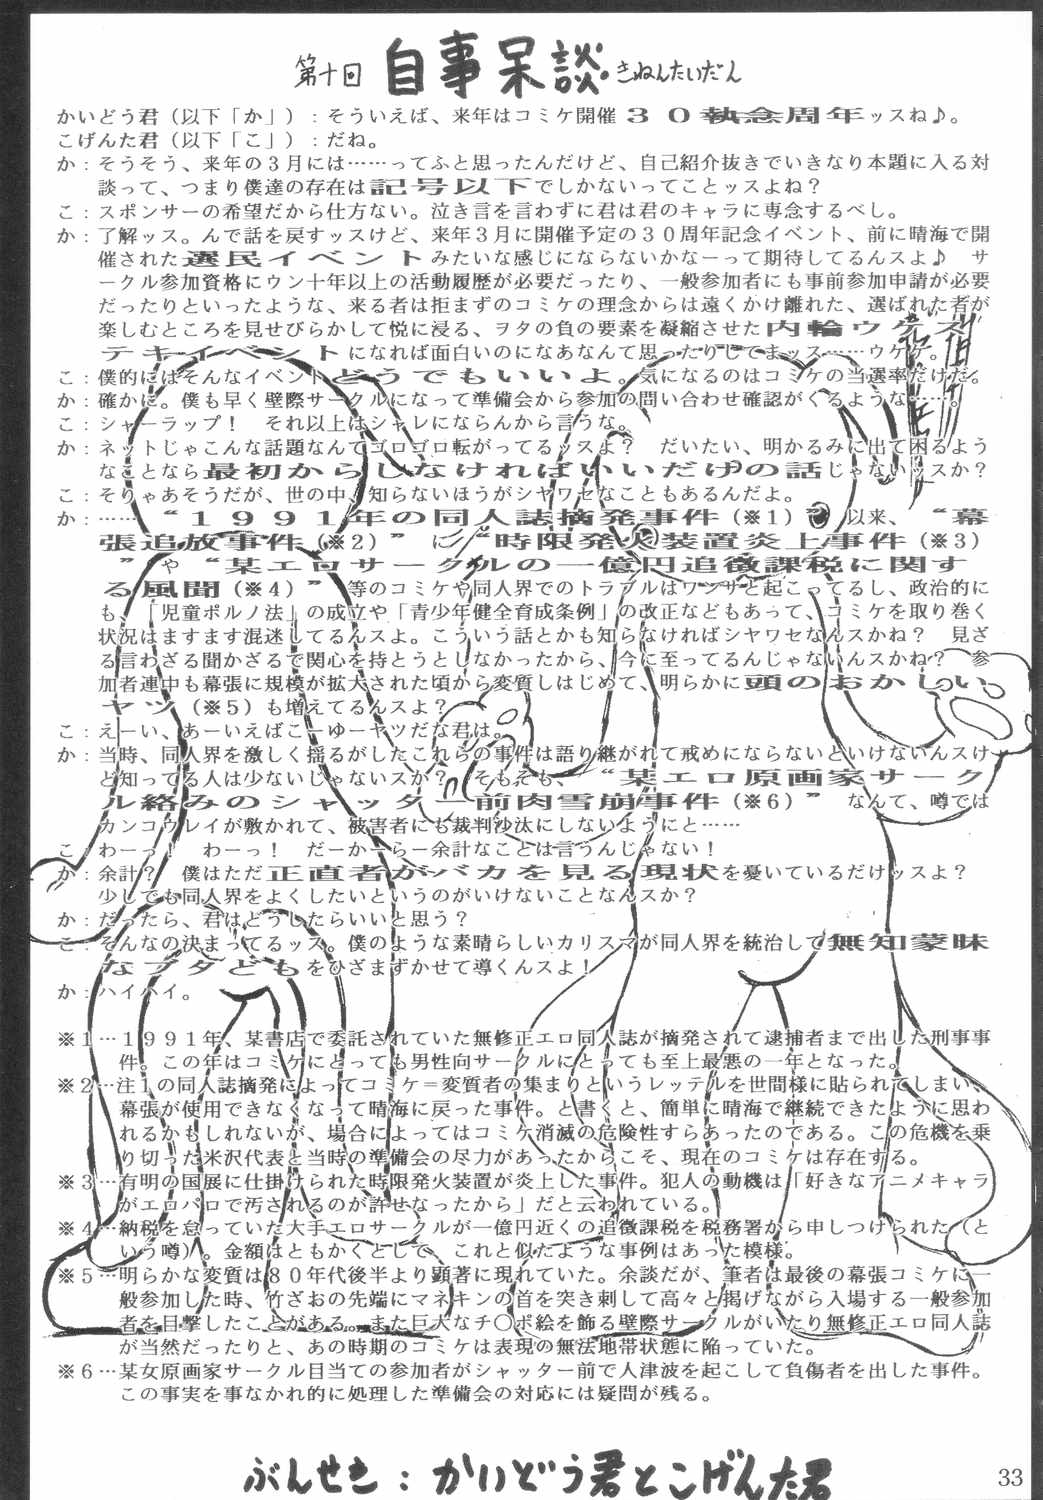 第十回 自事呆談 きねんたいだん
かいどう君（以下「か」）：そういえば、来年はコミケ開催３０執念周年ッスね♪。
こげんた君（以下「こ」）：だね。
か：そうそう、来年の３月には……ってふと思ったんだけど、自己紹介抜きでいきなり本題に入る対
談って、つまり僕達の存在は記号以下でしかないってことッスよね？
こ：スポンサーの希望だから仕方ない。泣き言を言わずに君は君のキャラに専念するべし。
か：了解ッス。んで話を戻すッスけど、来年３月に開催予定の３０周年記念イベント、前に晴海で開
催された選民イベントみたいな感じにならないかなーって期待してるんスよ♪　サ
ークル参加資格にウン十年以上の活動履歴が必要だったり、一般参加者にも事前参加申請が必要
だったりといったような、来る者は拒まずのコミケの理念からは遠くかけ離れた、選ばれた者が
楽しむところを見せびらかして悦に浸る、ヲタの負の要素を凝縮させた内輪ウケス
テキイベントになれば面白いのになあなんて思ったりしてまッス……ウケケ。
こ：僕的にはそんなイベントどうでもいいよ。気になるのはコミケの当選率だけだ。
か：確かに。僕も早く壁際サークルになって準備会から参加の問い合わせ確認がくるような……。
こ：シャーラップ！　それ以上はシャレにならんから言うな。
か：ネットじゃこんな話題なんてゴロゴロ転がってるッスよ？　だいたい、明かるみに出て困るよう
なことなら最初からしなければいいだけの話じゃないッスか？
こ：そりゃあそうだが、世の中、知らないほうがシヤワセなこともあるんだよ。
か：……“１９９１年の同人誌摘発事件（※１）”以来、“幕
張追放事件（※２）”に“時限発火装置炎上事件（※３）
”や“某エロサークルの一億円追徴課税に関す
る風聞（※４）”等のコミケや同人界でのトラブルはワンサと起こってるし、政治的に
も、「児童ポルノ法」の成立や「青少年健全育成条例」の改正などもあって、コミケを取り巻く
状況はますます混迷してるんスよ。こういう話とかも知らなければシヤワセなんスかね？　見ざ
る言わざる聞かざるで関心を持とうとしなかったから、今に至ってるんじゃないんスかね？　参
加者連中も幕張に規模が拡大された頃から変質しはじめて、明らかに頭のおかしい
ヤツ（※５）も増えてるんスよ？
こ：えーい、あーいえばこーゆーヤツだな君は。
か：当時、同人界を激しく揺るがしたこれらの事件は語り継がれて戒めにならないといけないんスけ
ど知ってる人は少ないじゃないスか？　そもそも、“某エロ原画家サーク
ル絡みのシャッター前肉雪崩事件（※６）”　なんて、噂では
カンコウレイが敷かれて、被害者にも裁判沙汰にしないようにと……
こ：わーっ！　わーっ！　だーかーらー余計なことは言うんじゃない！
か：余計？　僕はただ正直者がバカを見る現状を憂いているだけッスよ？
少しでも同人界をよくしたいというのがいけないことなんスか？
か：だったら、君はどうしたらいいと思う？
こ：そんなの決まってるッス。僕のような素晴らしいカリスマが同人界を統治して無知蒙昧
なブタどもをひざまずかせて導くんスよ！
か：ハイハイ。
※１…１９９１年、某書店で委託されていた無修正エロ同人誌が摘発されて逮捕者まで出した刑事事
件。この年はコミケにとっても男性向サークルにとっても至上最悪の一年となった。
※２…注１の同人誌摘発によってコミケ＝変質者の集まりというレッテルを世間様に貼られてしまい、
幕張が使用できなくなって晴海に戻った事件。と書くと、簡単に晴海で継続できたように思わ
れるかもしれないが、場合によってはコミケ消滅の危険性すらあったのである。この危機を乗
り切った米沢代表と当時の準備会の尽力があったからこそ、現在のコミケは存在する。
※３…有明の国展に仕掛けられた時限発火装置が炎上した事件。犯人の動機は「好きなアニメキャラ
がエロパロで汚されるのが許せなったから」だと云われている。
※４…納税を怠っていた大手エロサークルが一億円近くの追徴課税を税務署から申しつけられた（と
いう噂）。金額はともかくとして、これと似たような事例はあった模様。
※５…明らかな変質は８０年代後半より顕著に現れていた。余談だが、筆者は最後の幕張コミケに一
般参加した時、竹ざおの先端にマネキンの首を突き刺して高々と掲げながら入場する一般参加
者を目撃したことがある。また巨大なチ○ポ絵を飾る壁際サークルがいたり無修正エロ同人誌
が当然だったりと、あの時期のコミケは表現の無法地帯状態に陥っていた。
※６…某女原画家サークル目当ての参加者がシャッター前で人津波を起こして負傷者を出した事件。
この事実を事なかれ的に処理した準備会の対応には疑問が残る。
ぶんせき：かいどう君とこげんた君
33